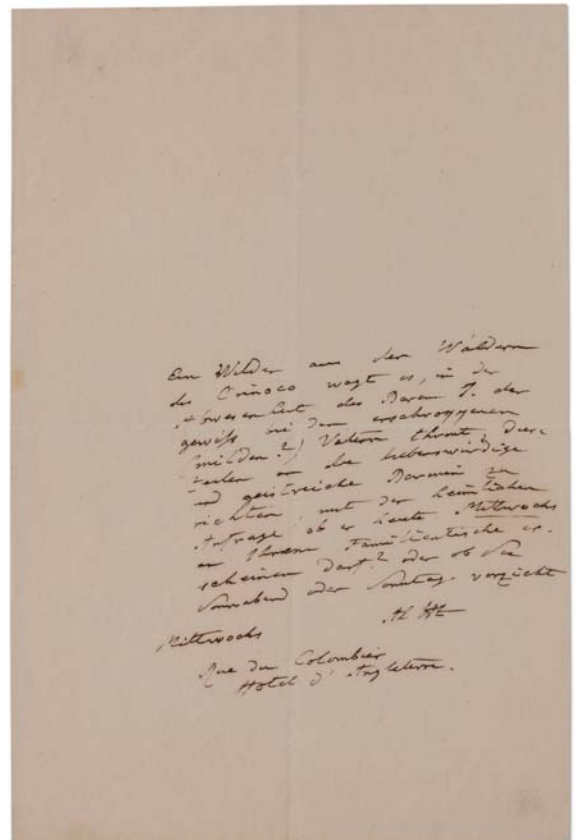 Ein Wilder aus den Wäldern
des Orinoco wagt es, in der
Abwesenheit des Baron J. der
gewiss bei den
(milden?) Vätern thront, diese
Zeilen an die liebenswürdige
und geistreiche Baronin zu
richten, mit der
Anfrage ob er heute Mittwochs
an Ihrem Familientische er-
scheinen darf? oder ob Sie
Sonnabend oder Sonntag vorzieht
Al Ht
Mittwochs
Rue du Colombier
Hotel d'Angleterre.